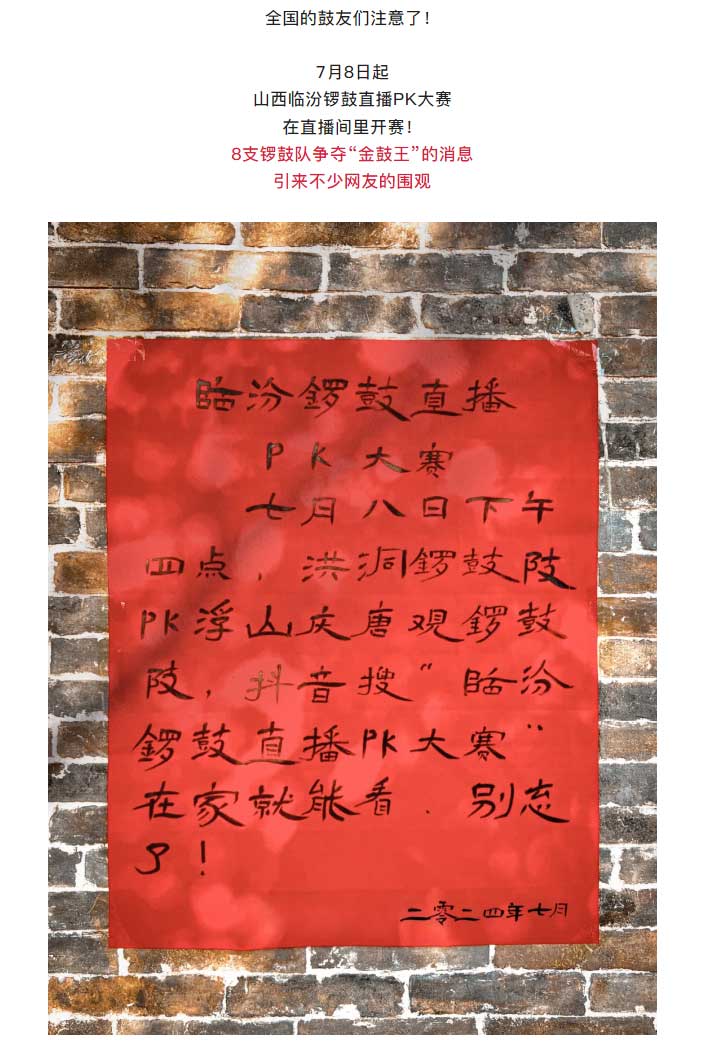 全国的鼓友们注意了！
7月8日起
山西临汾锣鼓直播PK大赛
在直播间里开赛！
8支锣鼓队争夺“金鼓王”的消息
引来不少网友的围观
临汾锣鼓直播
PK大赛
七月八日下午
四点，洪洞锣鼓队
PK浮山庆唐观锣鼓
队，抖音搜“临汾
锣鼓直播PK大赛”
在家就能看．别忘
了！
二零二四年七月